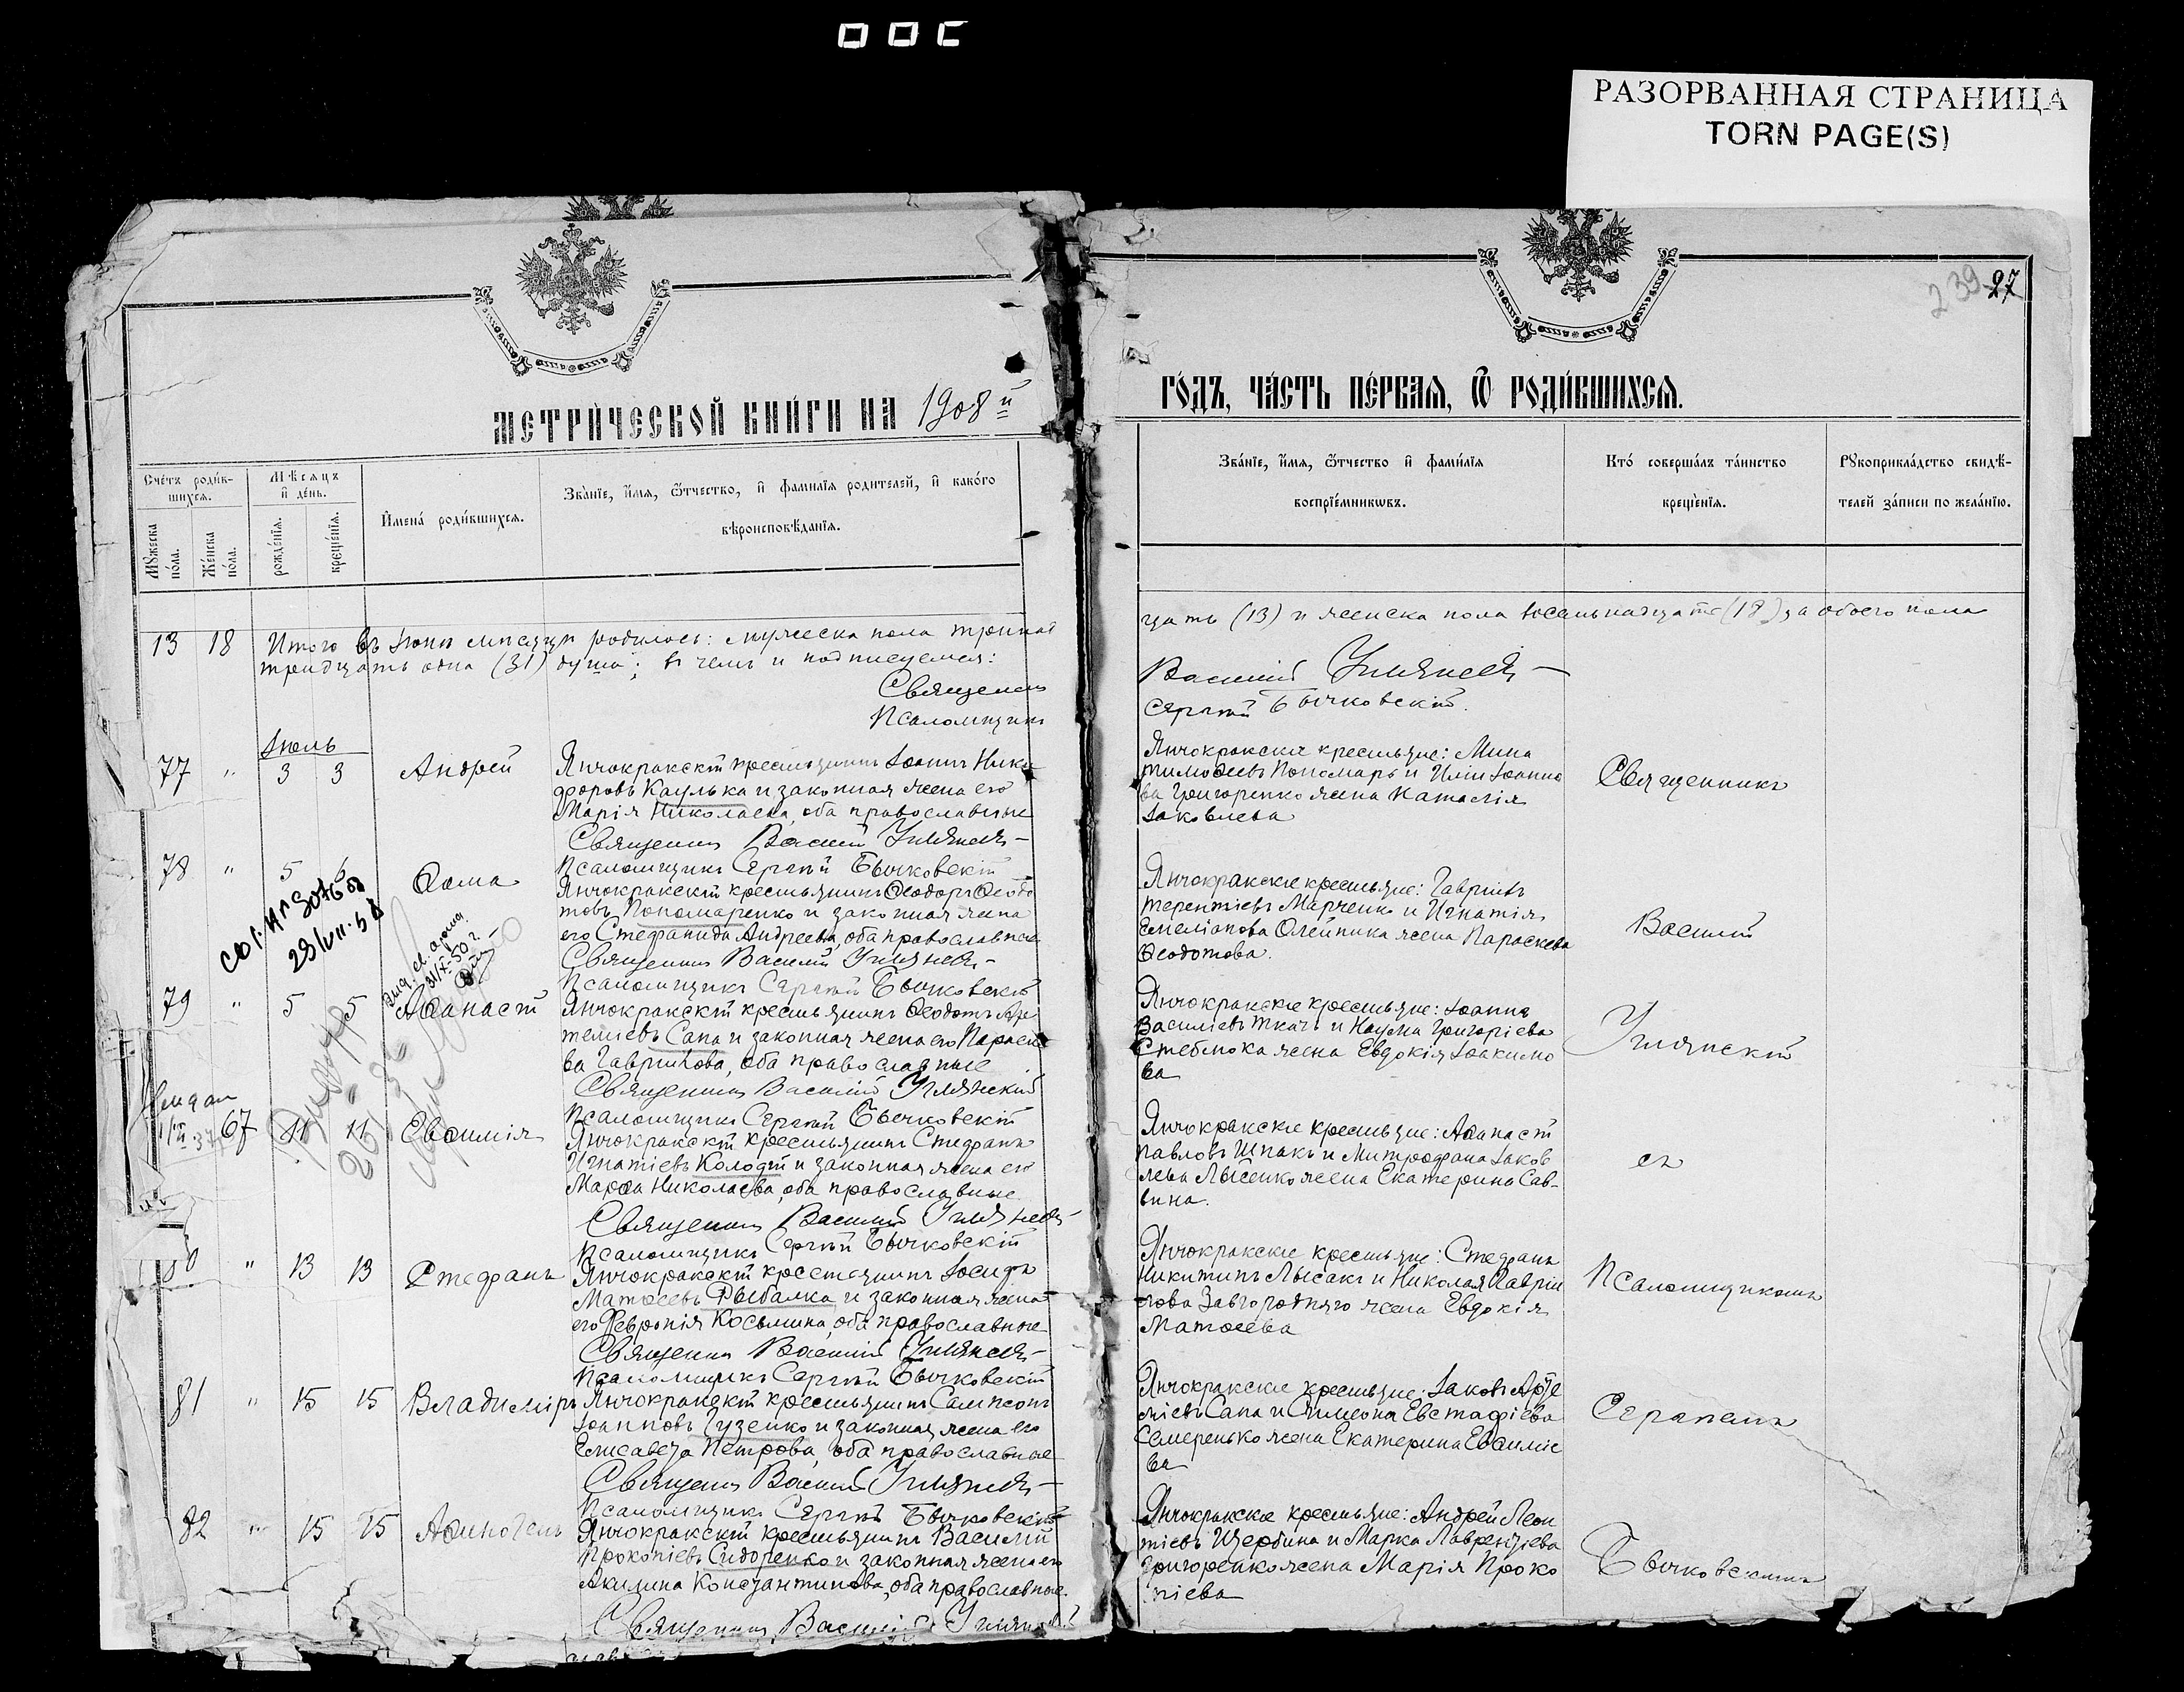 РАЗОРВАННАЯ СТРАНИЦА
TORN PAGE(S)
239 27
МЕТРИ́ЧЕСКОЙ КНИ́ГИ НА 1908й
ГО́ДЪ, ЧА́СТЬ ПЕ́РВАЯ, Ѿ РОДИ́ВШИХСЯ.
Счётъ роди́в-
шихся.
Мꙋ́жеска по́ла.
Же́нска по́ла.
Мѣ́сяцъ
и҆ де́нь.
рожде́нїя.
креще́нїя.
И҆мена́ роди́вшихся.
Зва́нїе, и҆́мя, ѻ҆́тчество, и҆ фами́лїя роди́телей, и҆ како́го
вѣроисповѣ́данїя.
Зва́нїе, и҆́мя, ѻ҆́тчество и҆ фами́лїя
воспрїе́мникѡвъ.
Кто́ соверша́лъ та́инство
креще́нїя.
Рꙋкоприкла́дство свидѣ́-
телей за́писи по жела́нїю.
13 18 Итого въ Іюнѣ мѣсяцѣ родилось: мужеска пола тринад
цать (13) и женска пола восемьнадцать (18), а обоего пола
тридцать одна (31) душа; въ чемъ и подписуемся:
Священникъ Василій Углянскій
Псаломщикъ Сергѣй Бычковскій.
Іюль
77 " 3 3 Андрей
Янчокракскій крестьянинъ Іоаннъ Ники
форовъ Каулька и законная жена его
Марія Николаева, оба православные
Священникъ Василій Углянскій
Псаломщикъ Сергѣй Бычковскій
Янчокракскіе крестьяне: Мина
Тимоѳеевъ Пономарь и Иліи Іоанно
ва Григоренко жена Наталія
Іаковлева
Священникъ
78 " 5 Ѳома
Янчокракскій крестьянинъ Ѳеодоръ Ѳеодо
товъ Пономаренко и законная жена
его Стефанида Андреева, оба православные
Священникъ Василій Углянскій
Псаломщикъ Сергѣй Бычковскій
Янчокракскіе крестьяне: Гавріилъ
Терентіевъ Марченко и Игнатія
Емеліанова Олейника жена Параскева
Ѳеодотова.
Василій
79 " 5 5 Аѳанасій
Янчокракскій крестьянинъ Ѳеодотъ Ар
теміевъ Сапа и законная жена его Параске
ва Гавриілова, оба православные
Священникъ Василій Углянскій
Псаломщикъ Сергѣй Бычковскій
Янчокракскіе крестьяне: Іоаннъ
Василіевъ Ткачъ и Наума Григоріева
Стеблюка жена Евдокія Іоакимо
ва
Углянскій
67 11 11 Евѳимія
Янчокракскій крестьянинъ Стефанъ
Игнатіевъ Колодій и законная жена его
Марѳа Николаева, оба православные
Священникъ Василій Углянскій
Псаломщикъ Сергѣй Бычковскій
Янчокракскіе крестьяне: Аѳанасій
Павловъ Шпакъ и Митрофана Іаков
лева Лысенко жена Екатерина Сав-
вина.
съ
" 13 13 Стефанъ
Янчокракскій крестьянинъ Іосифъ
Матѳеевъ Рыбалка и законная жена
его Февронія Косьмина, оба православные
Священникъ Василій Углянскій
Псаломщикъ Сергѣй Бычковскій
Янчокракскіе крестьяне: Стефанъ
Никитинъ Лысакъ и Николая Гавріи
лова Завгородняго жена Евдокія
Матѳеева
Псаломщикомъ
81 " 15 15 Владиміръ
Янчокракскій крестьянинъ Сампсонъ
Іоанновъ Гузенко и законная жена его
Елисавета Петрова, оба православные
Священникъ Василій Углянскій
Псаломщикъ Сергѣй Бычковскій
Янчокракскіе крестьяне: Іаковъ Арте
міевъ Сапа и Симеона Евстафіева
Семеренько жена Екатерина Евѳиміе
ва
Сергѣемъ
82 " 15 15 Аѳиногенъ
Янчокракскій крестьянинъ Василій
Прокопіевъ Сидоренко и законная жена его
Акилина Константинова, оба православные.
Священникъ Василій Углянскій
Янчокракскіе крестьяне: Андрей Леон
тіевъ Щербина и Марка Лаврентіева
Григоренко жена Марія Проко
піева
Бычковскимъ